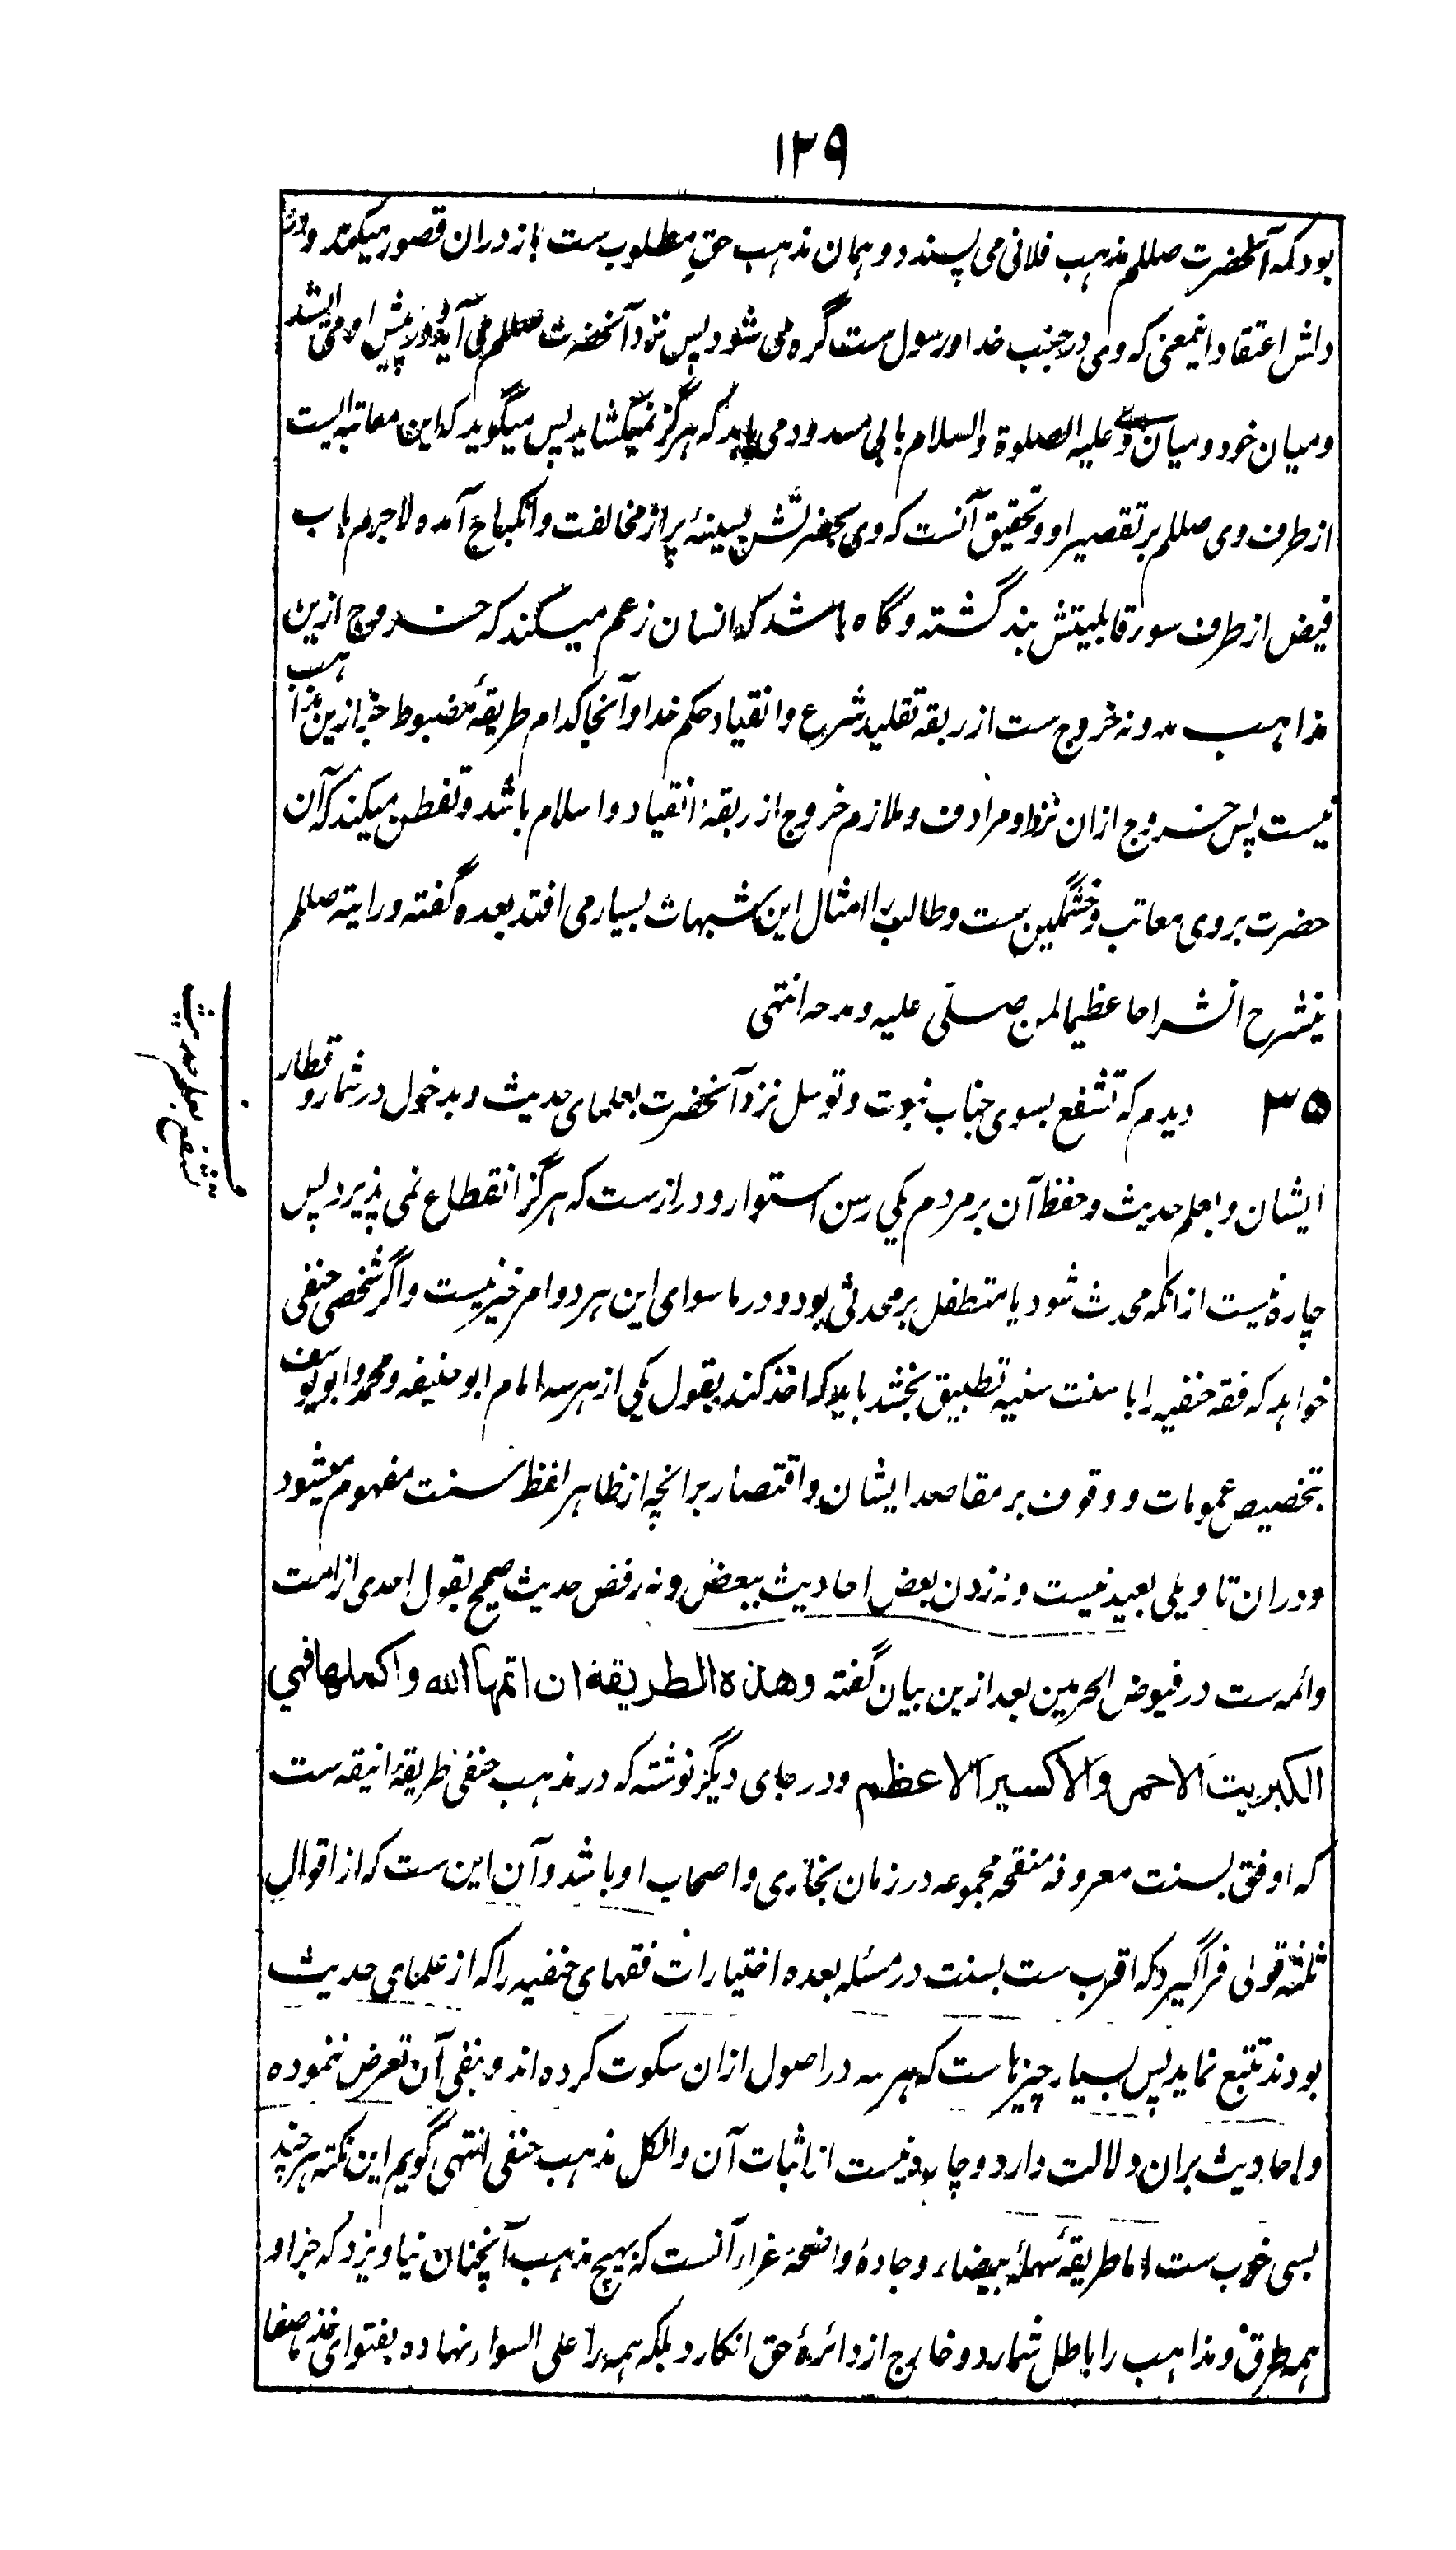 ۱۲۹
بود که آنحضرت صللم مذهب فلانی می پسندد و همان مذهب حق مطلوب ست باز دران قصور میکند و در
دلش اعتقاد اینمعنی که وی در جنب خدا و رسول ست گره می شود پس نزد آنحضرت صللم می آید و در پیش او می ایستد
و میان خود و میان وی علیه الصلوة والسلام بابی مسدود می یابد که هرگز نمیکشاید پس میگوید که این معاتبه ایست
از طرف وی صللم بر تقصیر او و تحقیق آنست که وی بحضرتش بسینهٔ پر از مخالفت و انکماح آمده لاجرم باب
فیض از طرف سوء قابلیتش بند گشته و گاه باشد که انسان زعم میکند که خروج ازین
مذاهب مدونه خروج ست از ربقه تقلید شرع و انقیاد حکم خدا و آنجا کدام طریقهٔ مضبوط جز ازین مذاهب
نیست پس خروج ازان نزد او مرادف و ملازم خروج از ربقهٔ انقیاد و اسلام باشد و تفطن میکند که آن
حضرت بروی معاتب و خشمگین ست و طالب را امثال این شبهات بسیار می افتد بعده گفته ورایته صللم
ینشرح انشراحا عظیما لمن صلی علیه و مدحه انتهی
۳۵ دیدم که تشفع بسوی جناب نبوت و توسل نزد آنحضرت بعلمای حدیث و بدخول در شمار و قطار
تشفع بعلم حدیث
ایشان و بعلم حدیث و حفظ آن بر مردم یکی رسن استوار و دراز ست که هرگز انقطاع نمی پذیرد پس
چاره نیست از انکه محدث شود یا متطفل بر محدثی بود و در ما سوای این هر دو امر خیر نیست و اگر شخصی حنفی
خواهد که فقه حنفیه را با سنت سنیه تطبیق بخشد باید که اخذ کند بقول یکی از هر سه امام ابو حنیفه و محمد و ابو یوسف
بتخصیص عمومات و وقوف بر مقاصد ایشان و اقتصار بر انچه از ظاهر لفظ سنت مفهوم میشود
و دران تاویلی بعید نیست و نه زدن بعض احادیث ببعض و نه رفض حدیث صحیح بقول احدی از امت
و ائمه ست در فیوض الحرمین بعد ازین بیان گفته وهذه الطریقة ان اتمها الله واکملها فهی
الکبریت الاحمر والاکسیر الاعظم و در جای دیگر نوشته که در مذهب حنفی طریقهٔ انیقه ست
که اوفق بسنت معروفه منقحه مجموعه در زمان بخاری و اصحاب او باشد و آن این ست که از اقوال
ثلثه قولی فرا گیرد که اقرب ست بسنت در مسئله بعده اختیارات فقهای حنفیه را که از علمای حدیث
بودند تتبع نماید پس بسیار چیزها ست که هر سه در اصول ازان سکوت کرده اند و بنفی آن تعرض ننموده
و احادیث بران دلالت دارد و چاره نیست از اثبات آن والکل مذهب حنفی انتهی گویم این نکته هر چند
بسی خوب ست اما طریقهٔ سهلهٔ بیضاء و جادهٔ واضحهٔ غراء آنست که بهیچ مذهب آنچنان نیاویزد که جز او
همه طرق و مذاهب را باطل شمارد و خارج از دائرهٔ حق انکارد بلکه همه را علی السواء نهاده بفتوای خذ ما صفا